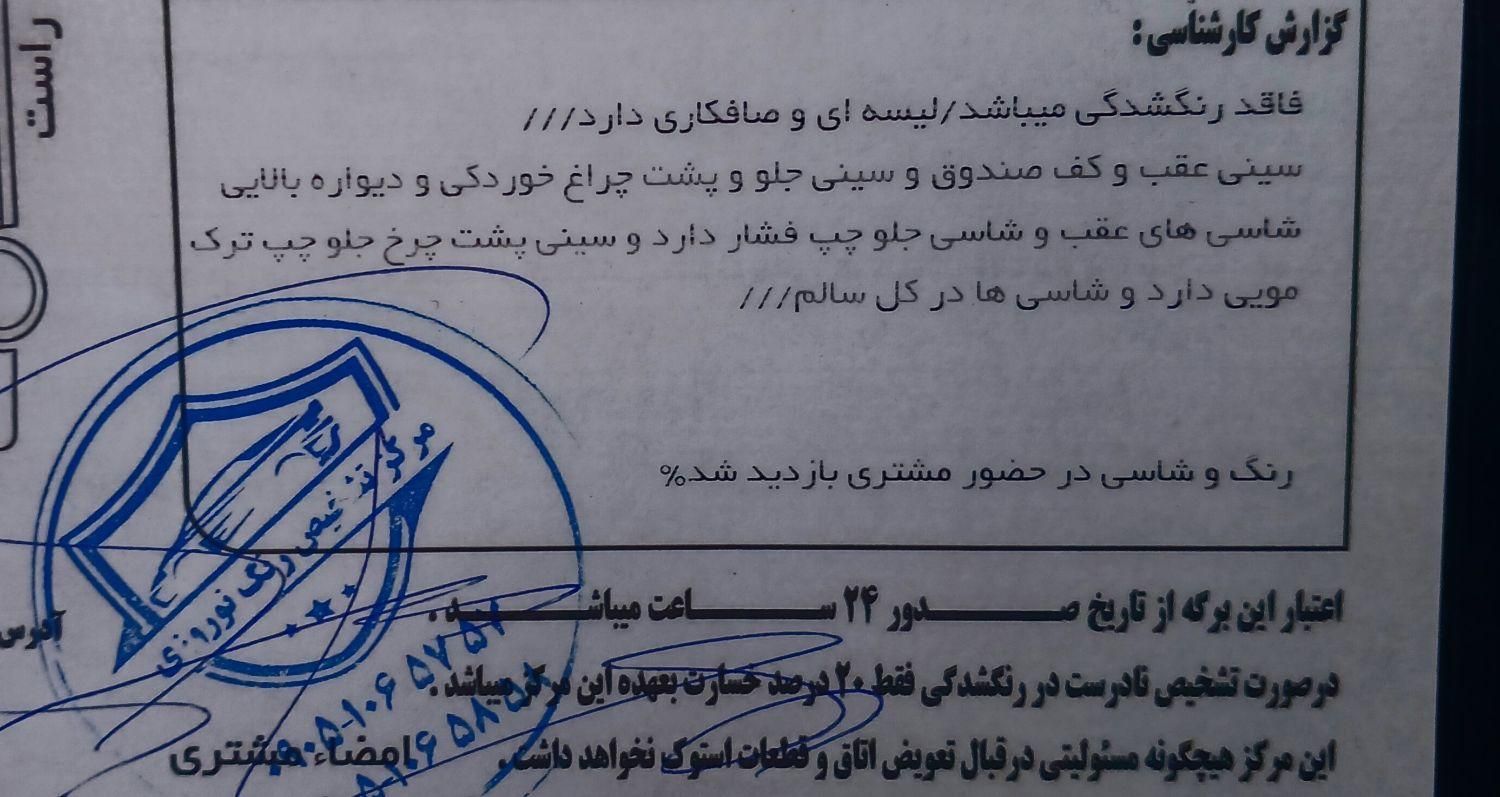 گزارش کارشناسی:
فاقد رنگشدگی میباشد/لیسه ای و صافکاری دارد///
سینی عقب و کف صندوق و سینی جلو و پشت چراغ خوردکی و دیواره بالایی
شاسی های عقب و شاسی جلو چپ فشار دارد و سینی پشت چرخ جلو چپ ترک
مویی دارد و شاسی ها در کل سالم///
رنگ و شاسی در حضور مشتری بازدید شد%
راست
مرکز تشخیص رنگ نوروزی
اعتبار این برگه از تاریخ صدور ۲۴ ساعت میباشد.
آدرس
درصورت تشخیص نادرست در رنگشدگی فقط ۲۰ درصد خسارت بعهده این مرکز میباشد.
این مرکز هیچگونه مسئولیتی درقبال تعویض اتاق و قطعات استوک نخواهد داشت.
امضاء مشتری